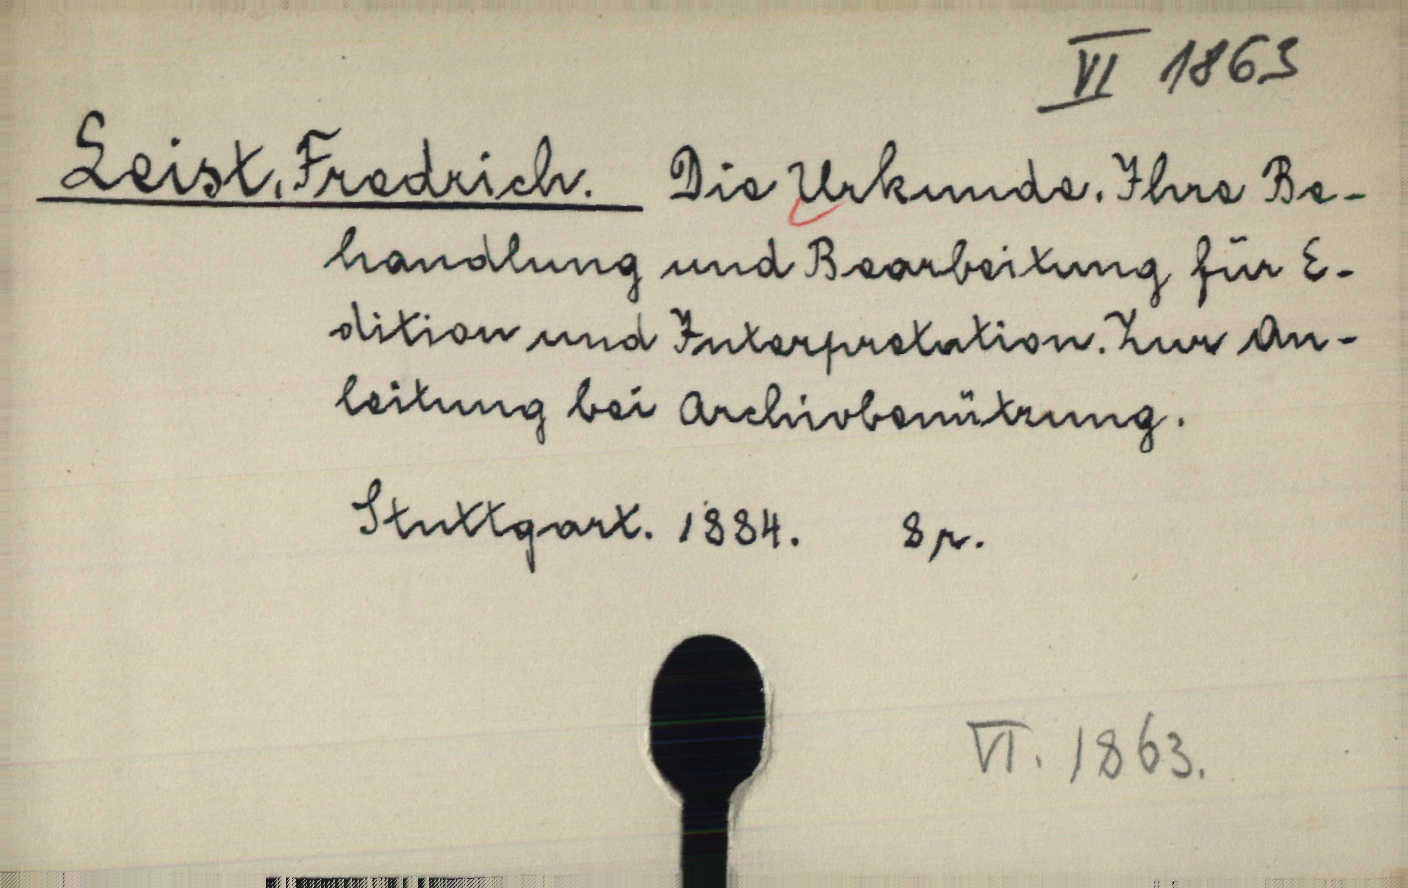 VI 1863
Leist, Fredrich. Die Urkunde. Ihre Be-
handlung und Bearbeitung für E-
dition und Interpretation. Zur An-
leitung bei Archivbenützung.
Stuttgart. 1884. 8 r.
VI. 1863.